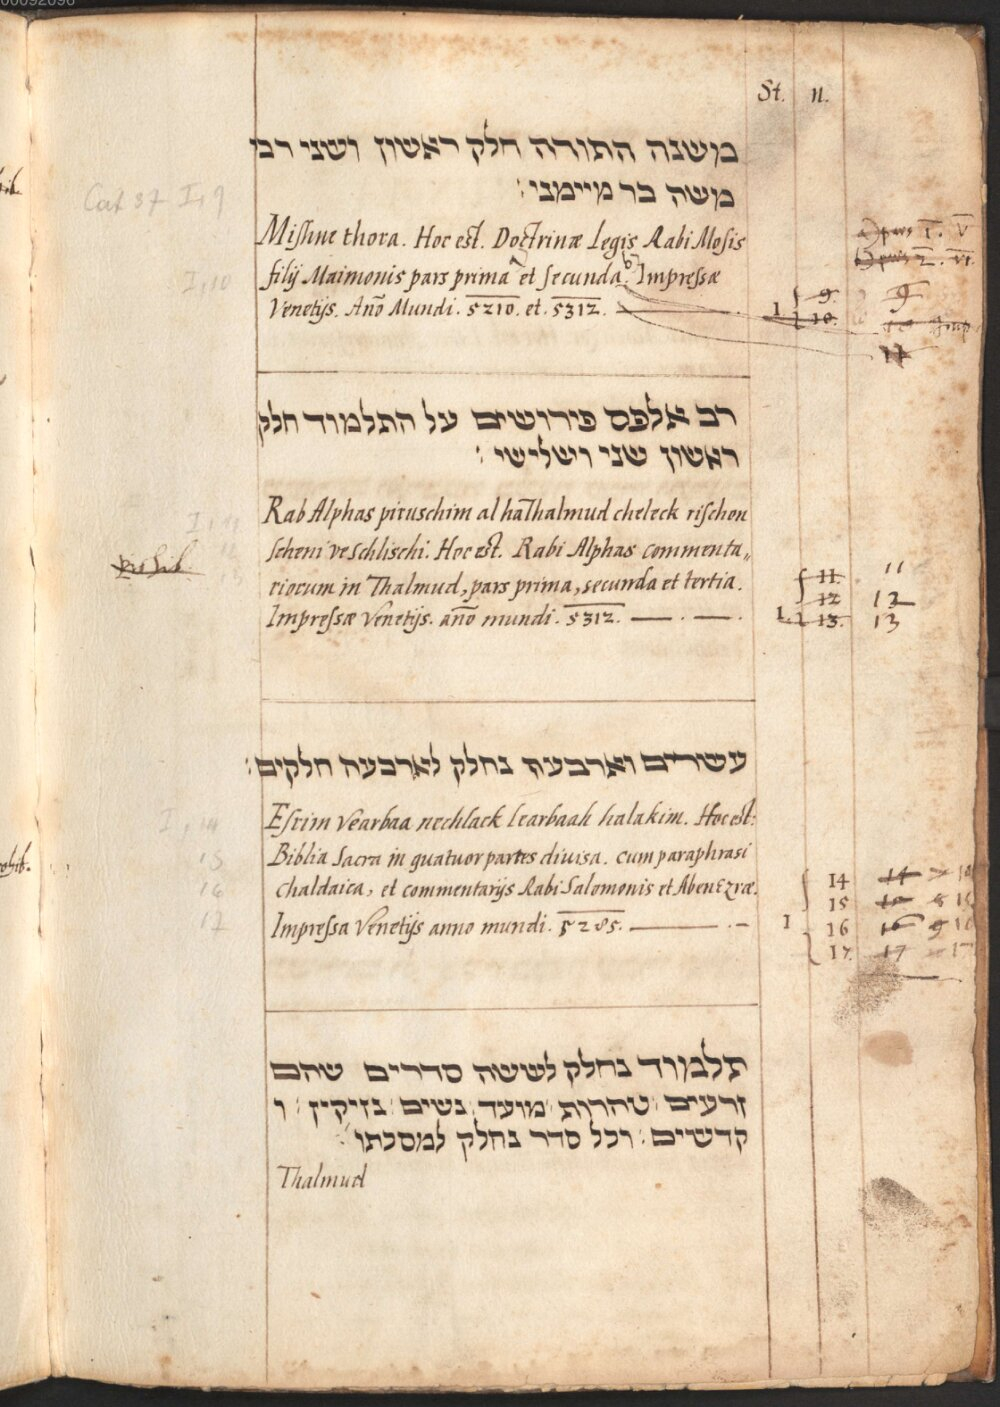 St. n.
משנה התורה חלק ראשון ושני רבי
משה בר מיימני:
Cat 37 I, 9
Mishne thora. Hoc est. Doctrinæ Legis Rabi Mosis
I, 10
filij Maimonis pars prima et secunda. Impressæ
Venetijs. Año Mundi. 5210. et. 5312.
a) pars I. V
b) pars 2. VI.
9. 9
I 10.
11
רב אלפס פירושים על התלמוד חלק
ראשון שני ושלישי:
Rab Alphas piruschim al haThalmud cheleck rischon
scheni veschlischi. Hoc est. Rabi Alphas commenta„
riorum in Thalmud, pars prima, secunda et tertia.
Impressæ Venetijs. año mundi. 5312.
prohib.
11. 11
12 12
I. 13. 13
עשרים וארבעה נחלק לארבעה חלקים:
Esrim vearbaa nechlack learbaah halakim. Hoc est:
Biblia Sacra in quatuor partes divisa. cum paraphrasi
chaldaica, et commentarijs Rabi Salomonis et Aben Ezræ.
Impressa Venetijs anno mundi. 5285.
I, 14
15
16
17
14 14
15
I 16 16
17. 17
תלמוד נחלק לששה סדרים שהם
זרעים: טהרות: מועד: נשים: נזיקין: ו
קדשים: וכל סדר נחלק למסכתו:
Thalmud